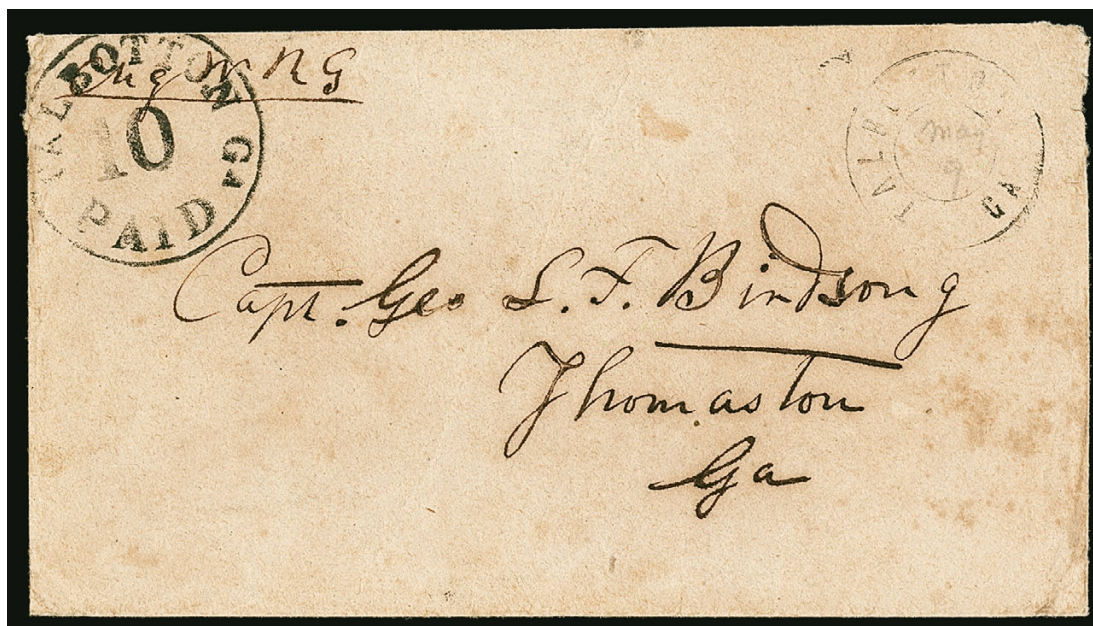 TALBOTTON GA
10
PAID
TALB GA
May
9
Capt. Geo L. F. Birdsong
Thomaston
Ga